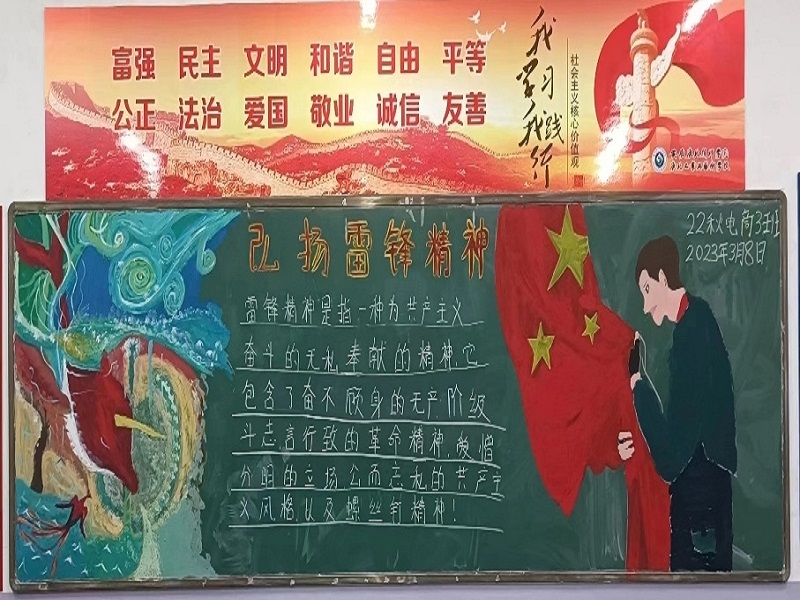 富强 民主 文明 和谐 自由 平等
公正 法治 爱国 敬业 诚信 友善
我学习
我践行
社会主义核心价值观
弘扬雷锋精神
22秋电商3班
2023年3月8日
雷锋精神是指一种为共产主义
奋斗的无私奉献的精神它
包含了奋不顾身的无产阶级
斗志言行致的革命精神,爱憎
分明的立场公而忘私的共产主
义风格以及螺丝钉精神!